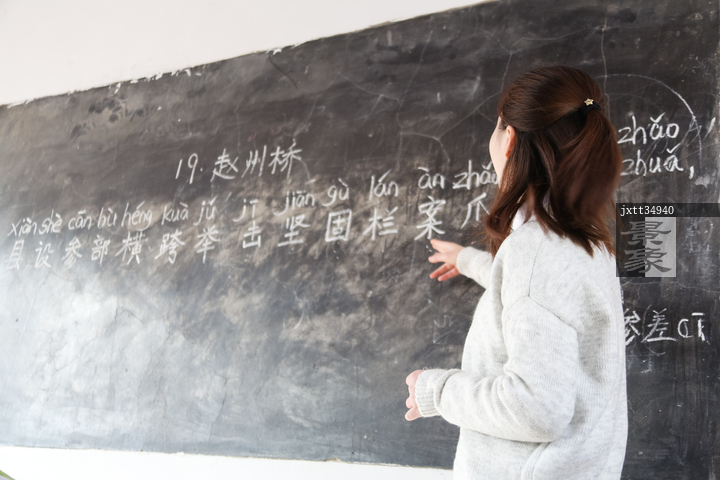 19. 赵州桥
xiàn shè cān bù héng kuà jǔ jī jiān gù lán àn zhǎo
县 设 参 部 横 跨 举 击 坚 固 栏 案 爪
zhǎo
zhuǎ,
参差 cī
jxtt34940
景象